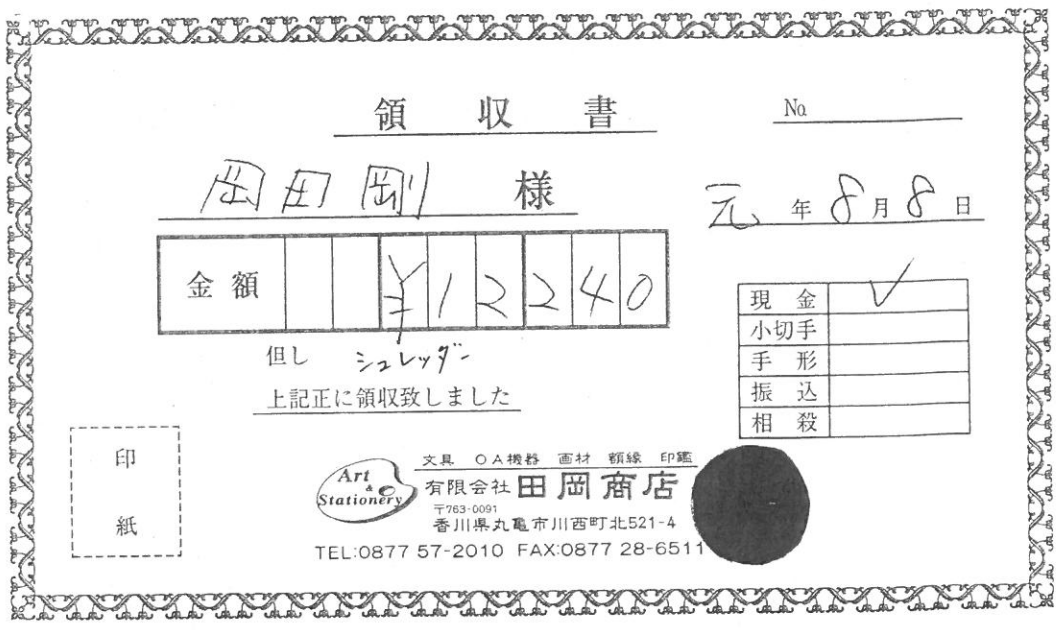 領収書
No.
岡田剛 様
元年8月8日
金額 ¥12240
但し シュレッダー
上記正に領収致しました
現金 ✓
小切手
手形
振込
相殺
印紙
Art & Stationery
文具 OA機器 画材 額縁 印鑑
有限会社 田岡商店
〒763-0091
香川県丸亀市川西町北521-4
TEL:0877 57-2010 FAX:0877 28-6511